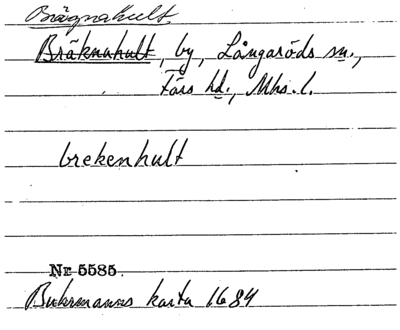 Brägnahult
Bräknahult, by, Långaröds sn.,
Färs hd., Mhs. l.
brekenhult
Nr 5585.
Buhrmanns karta 1684